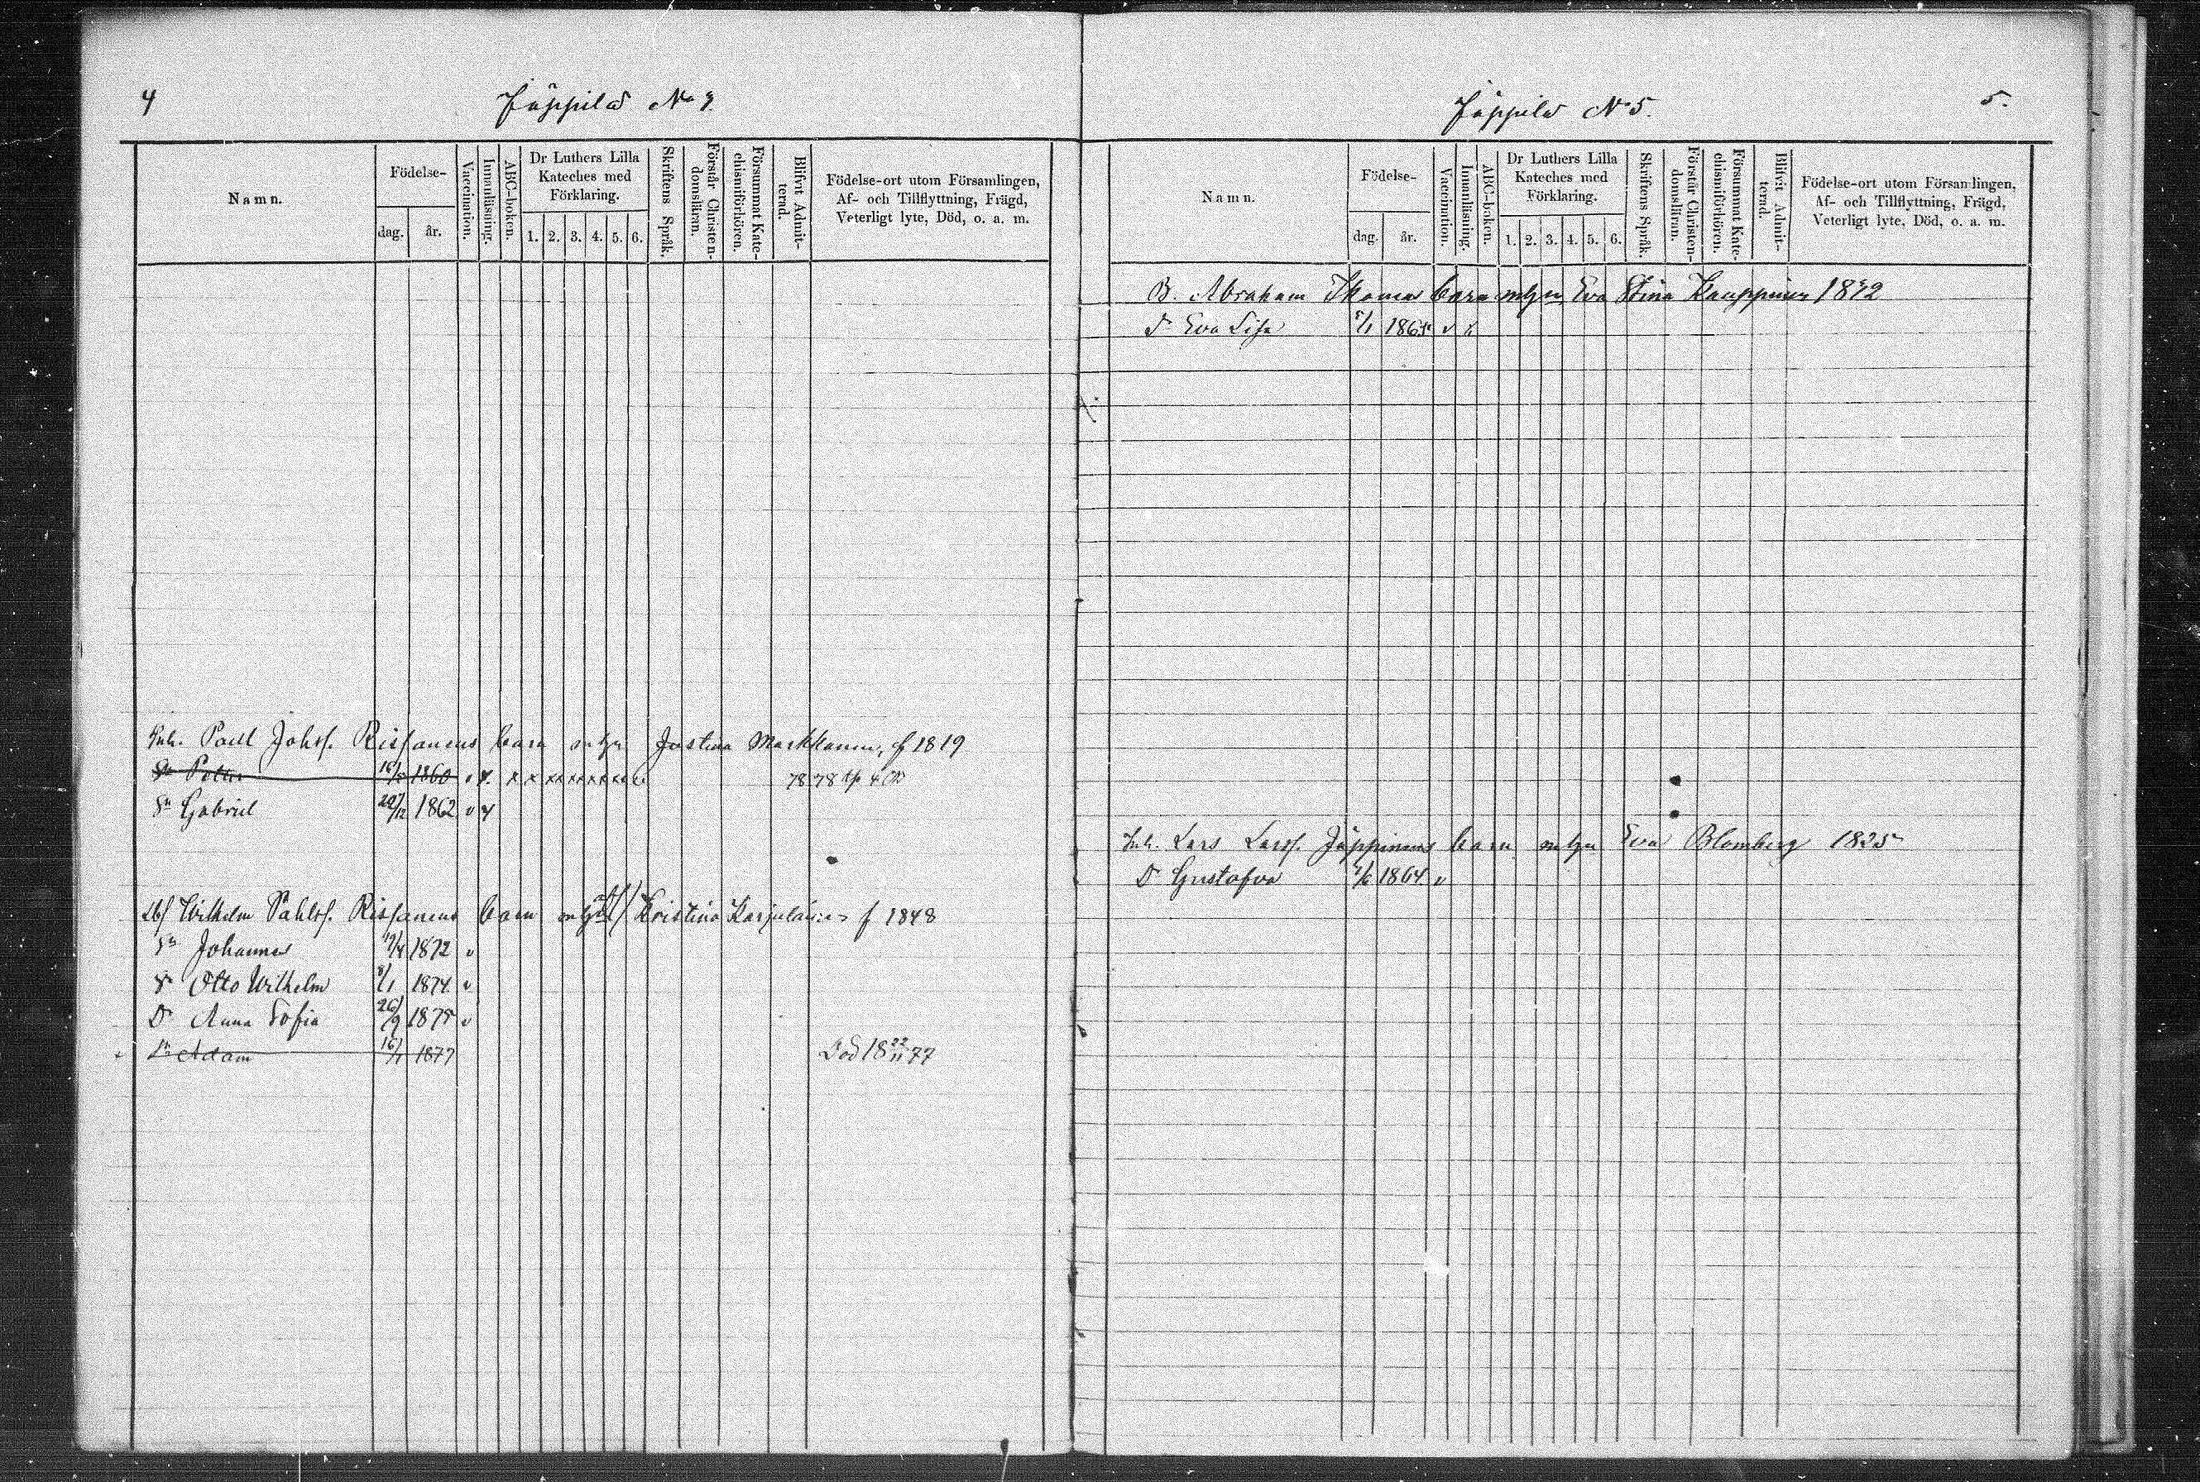 4
Jäppilä No 4.
Namn.
Födelse-
dag.
år.
Vaccination.
Innanläsning.
ABC-boken.
Dr Luthers Lilla Kateches med Förklaring.
1. 2. 3. 4. 5. 6.
Skriftens Språk.
Förstår Christendomsläran.
Försummat Katechismiförhören.
Blifvit Admitterad.
Födelse-ort utom Församlingen,
Af- och Tillflyttning, Frägd,
Veterligt lyte, Död, o. a. m.
Inh. Paul Johsf. Rissanens barn m hu Justina Markkanen, f 1819
Sn Petter 1860 v x x x x x x x x x 1878
Sn Gabriel 29/12 1862 v x
Lbf Wilhelm Pahlsf. Rissanens barn Kristina Karjalainen f 1848
Sn Johannes 19/4 1872 v
Sn Otto Wilhelm 8/1 1874 v
Dr Anna Sofia 26/9 1875 v
Sn Adam 16/1 1877 Död 18 22/11 77
5.
Jäppilä No 5.
Namn.
Födelse-
dag.
år.
Vaccination.
Innanläsning.
ABC-boken.
Dr Luthers Lilla Kateches med Förklaring.
1. 2. 3. 4. 5. 6.
Skriftens Språk.
Förstår Christendomsläran.
Försummat Katechismiförhören.
Blifvit Admitterad.
Födelse-ort utom Församlingen,
Af- och Tillflyttning, Frägd,
Veterligt lyte, Död, o. a. m.
B. Abraham barn Eva Stina Kauppinen
D Eva Lisa 5/1 1864 v
Inh. Lars Larsf. Jäppinens barn Eva Blomberg 1825
D Gustafva 1/6 1864 v